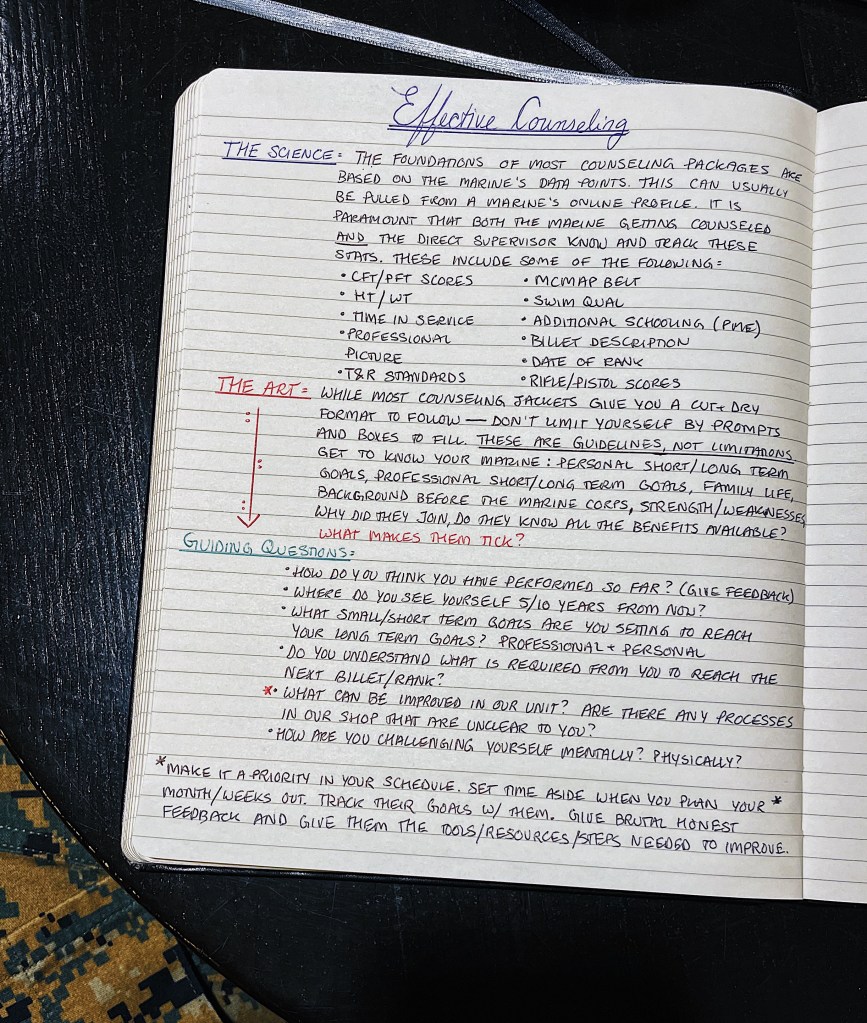 Effective Counseling
THE SCIENCE: THE FOUNDATIONS OF MOST COUNSELING PACKAGES ARE
BASED ON THE MARINE'S DATA POINTS. THIS CAN USUALLY
BE PULLED FROM A MARINE'S ONLINE PROFILE. IT IS
PARAMOUNT THAT BOTH THE MARINE GETTING COUNSELED
AND THE DIRECT SUPERVISOR KNOW AND TRACK THESE
STATS. THESE INCLUDE SOME OF THE FOLLOWING:
• CFT/PFT SCORES • MCMAP BELT
• HT/WT • SWIM QUAL
• TIME IN SERVICE • ADDITIONAL SCHOOLING (PME)
• PROFESSIONAL • BILLET DESCRIPTION
PICTURE • DATE OF RANK
• T&R STANDARDS • RIFLE/PISTOL SCORES
THE ART: WHILE MOST COUNSELING JACKETS GIVE YOU A CUT+DRY
FORMAT TO FOLLOW — DON'T LIMIT YOURSELF BY PROMPTS
AND BOXES TO FILL. THESE ARE GUIDELINES, NOT LIMITATIONS.
GET TO KNOW YOUR MARINE: PERSONAL SHORT/LONG TERM
GOALS, PROFESSIONAL SHORT/LONG TERM GOALS, FAMILY LIFE,
BACKGROUND BEFORE THE MARINE CORPS, STRENGTH/WEAKNESSES
WHY DID THEY JOIN, DO THEY KNOW ALL THE BENEFITS AVAILABLE?
WHAT MAKES THEM TICK?
GUIDING QUESTIONS:
• HOW DO YOU THINK YOU HAVE PERFORMED SO FAR? (GIVE FEEDBACK)
• WHERE DO YOU SEE YOURSELF 5/10 YEARS FROM NOW?
• WHAT SMALL/SHORT TERM GOALS ARE YOU SETTING TO REACH
YOUR LONG TERM GOALS? PROFESSIONAL + PERSONAL
• DO YOU UNDERSTAND WHAT IS REQUIRED FROM YOU TO REACH THE
NEXT BILLET/RANK?
*• WHAT CAN BE IMPROVED IN OUR UNIT? ARE THERE ANY PROCESSES
IN OUR SHOP THAT ARE UNCLEAR TO YOU?
• HOW ARE YOU CHALLENGING YOURSELF MENTALLY? PHYSICALLY?
*MAKE IT A PRIORITY IN YOUR SCHEDULE. SET TIME ASIDE WHEN YOU PLAN YOUR *
MONTH/WEEKS OUT. TRACK THEIR GOALS W/ THEM. GIVE BRUTAL HONEST
FEEDBACK AND GIVE THEM THE TOOLS/RESOURCES/STEPS NEEDED TO IMPROVE.